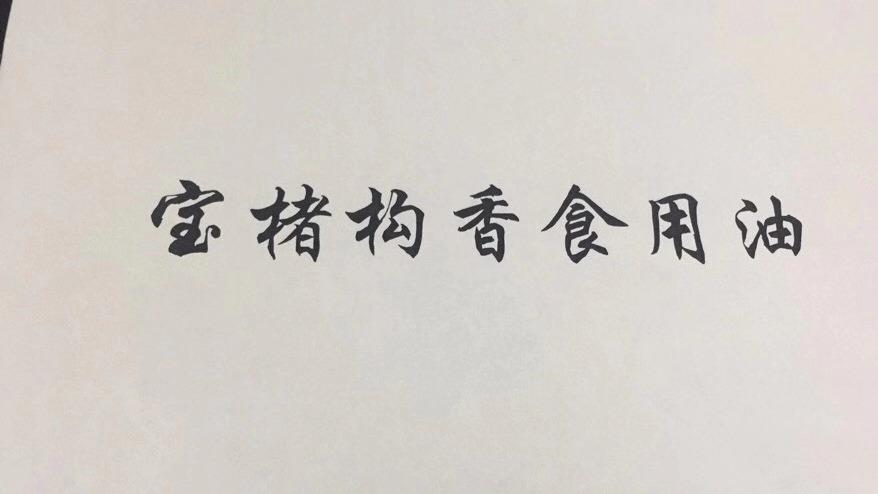 宝楮构香食用油